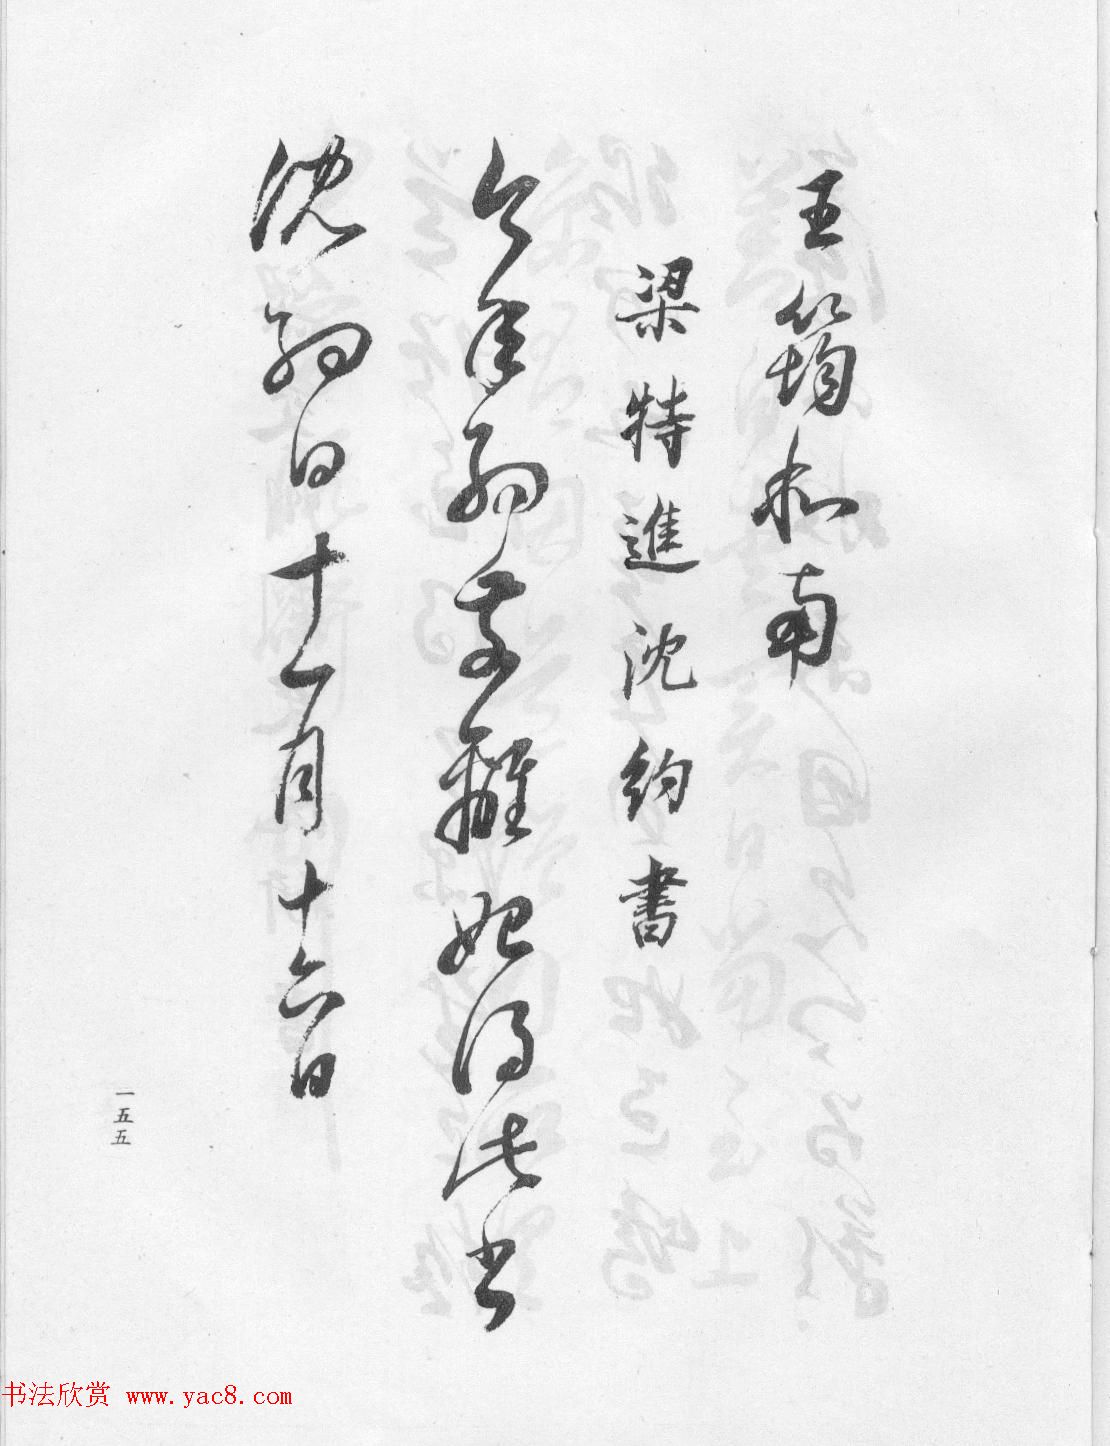 王筠和南
梁特進沈約書
今年約等離始得此書
沈約白十一月十六日
一五五
书法欣赏 www.yac8.com